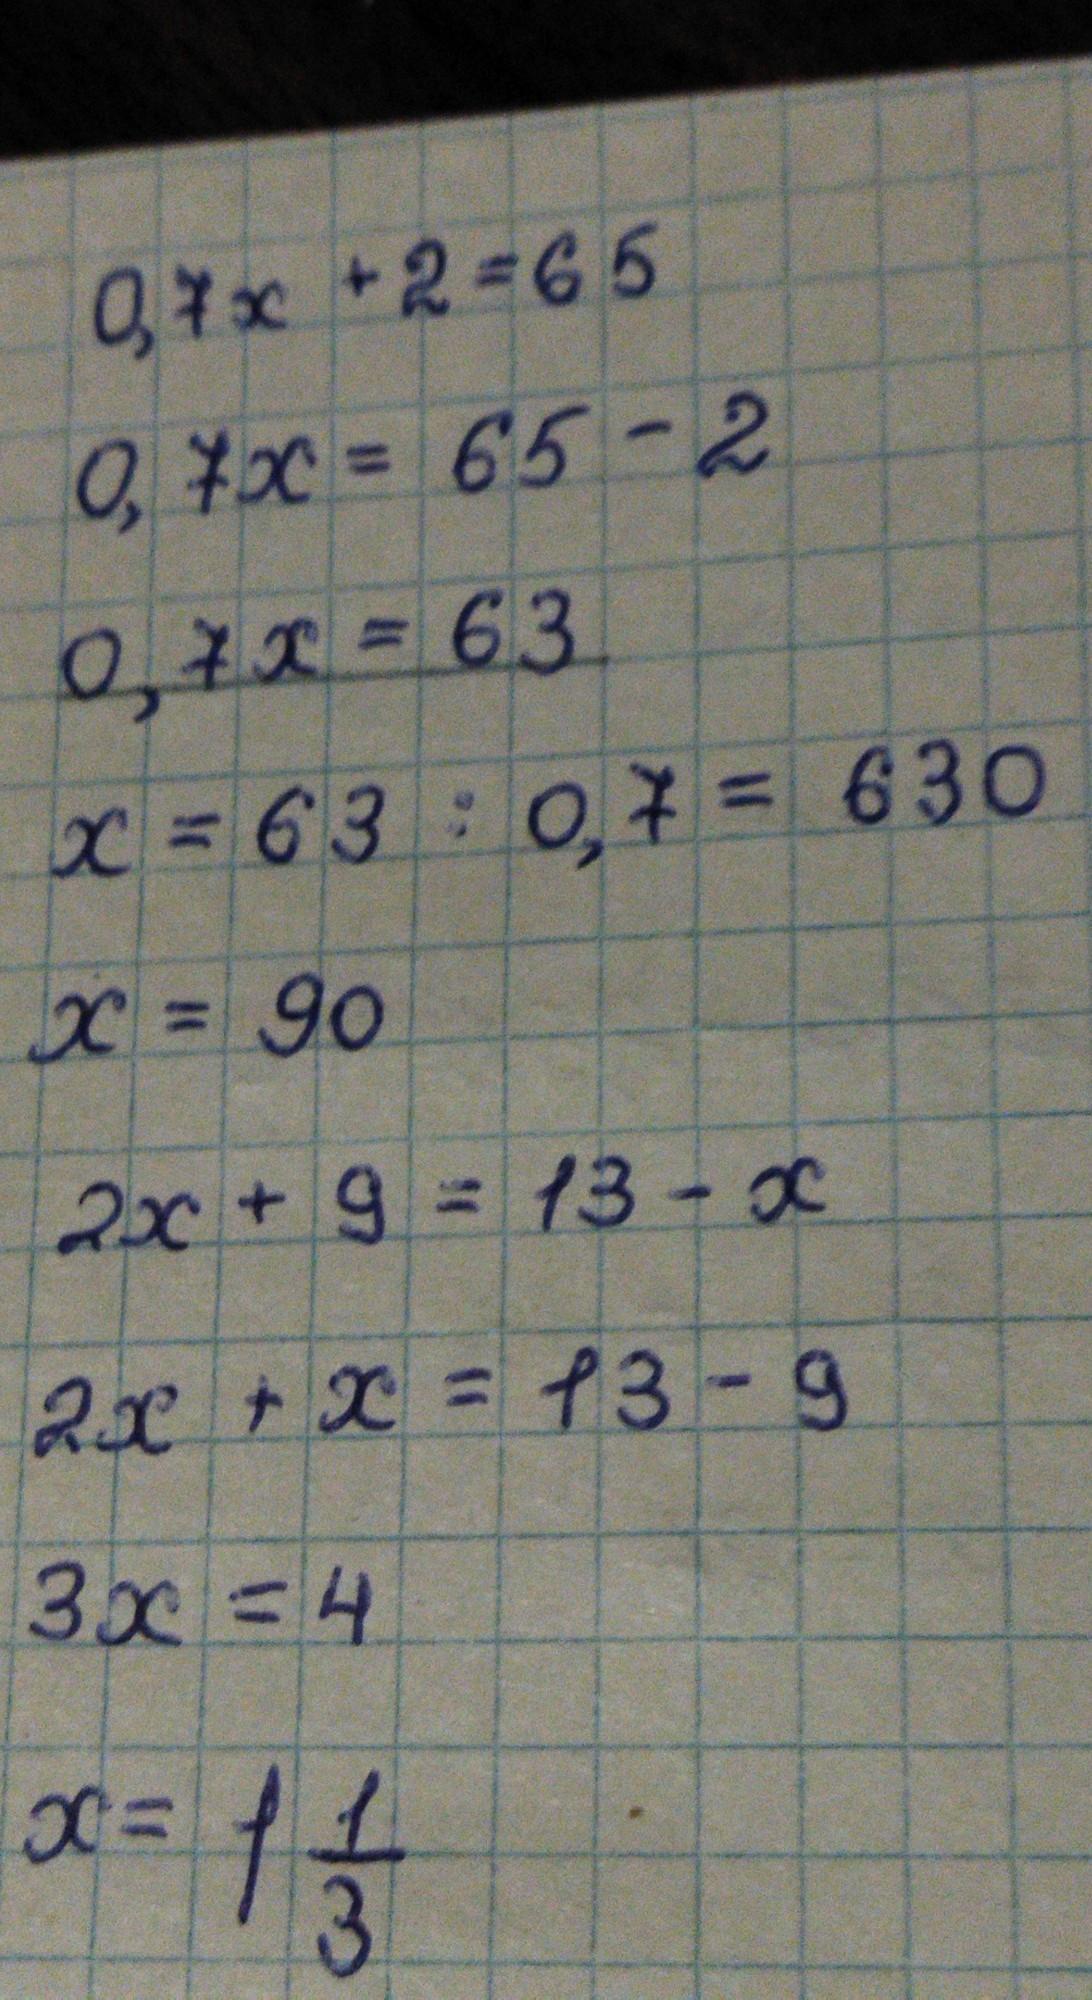 0,7x + 2 = 65
0,7x = 65 - 2
0,7x = 63
x = 63 : 0,7 = 630
x = 90
2x + 9 = 13 - x
2x + x = 13 - 9
3x = 4
x = 1 1/3